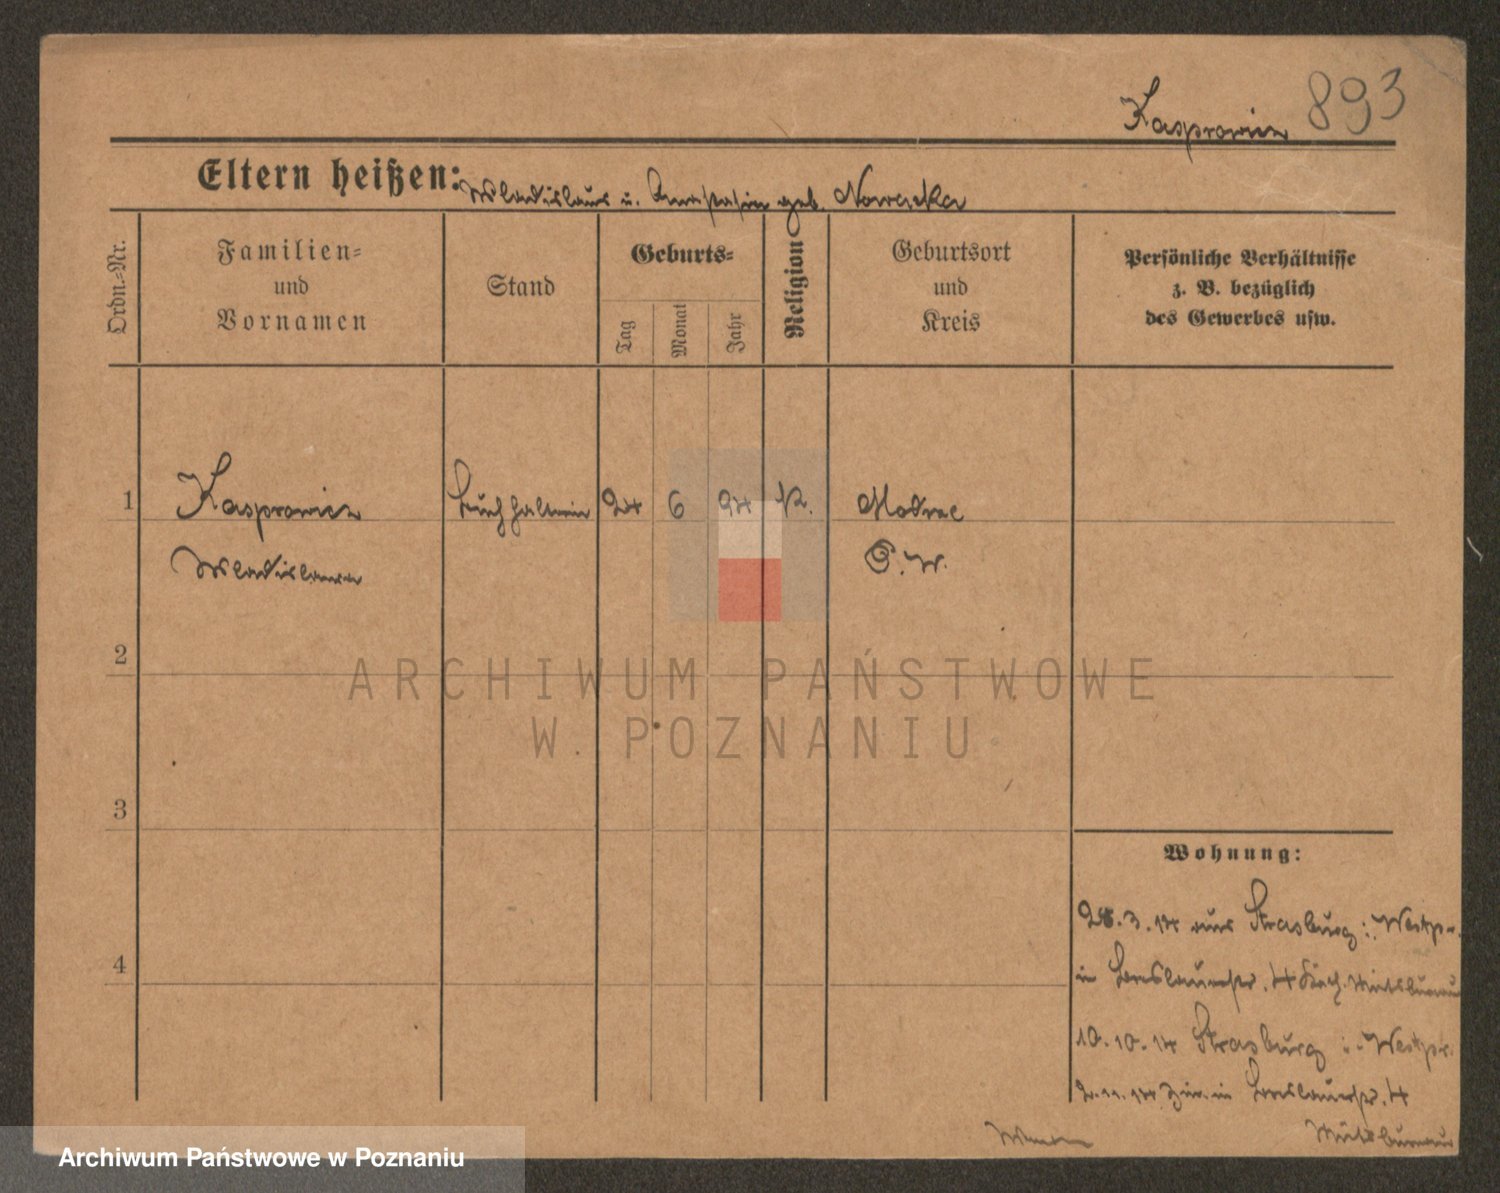 Kasprowicz 893
Eltern heißen: Wladislaus u. Anastasia geb. Nowacka
Ordn.-Nr.
Familien-
und
Vornamen
Stand
Geburts-
Tag
Monat
Jahr
Religion
Geburtsort
und
Kreis
Persönliche Verhältnisse
z. B. bezüglich
des Gewerbes usw.
1 Kasprowicz Buchhalterin 24 6 94 K. Modrze
Wladislawa P. W.
2
ARCHIWUM PAŃSTWOWE
W POZNANIU
3
Wohnung:
28.3.14 aus Strasburg i. Westpr.
4
in Breslauerstr. 4
10.10.14 Strasburg i. Westpr.
2.11.14 zur. in Breslauerstr. 4
Archiwum Państwowe w Poznaniu